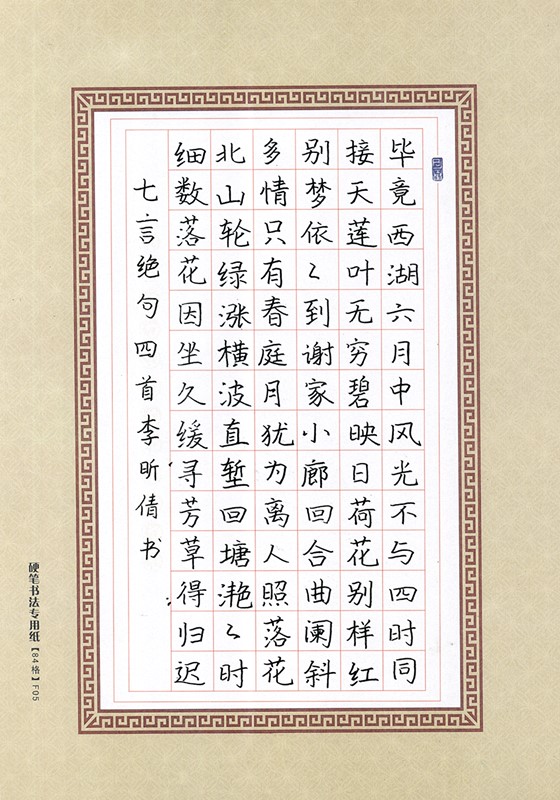 毕竟西湖六月中风光不与四时同
接天莲叶无穷碧映日荷花别样红
别梦依〻到谢家小廊回合曲阑斜
多情只有春庭月犹为离人照落花
北山轮绿涨横波直堑回塘滟〻时
细数落花因坐久缓寻芳草得归迟
七言绝句四首李昕倩书
硬笔书法专用纸【84格】F05